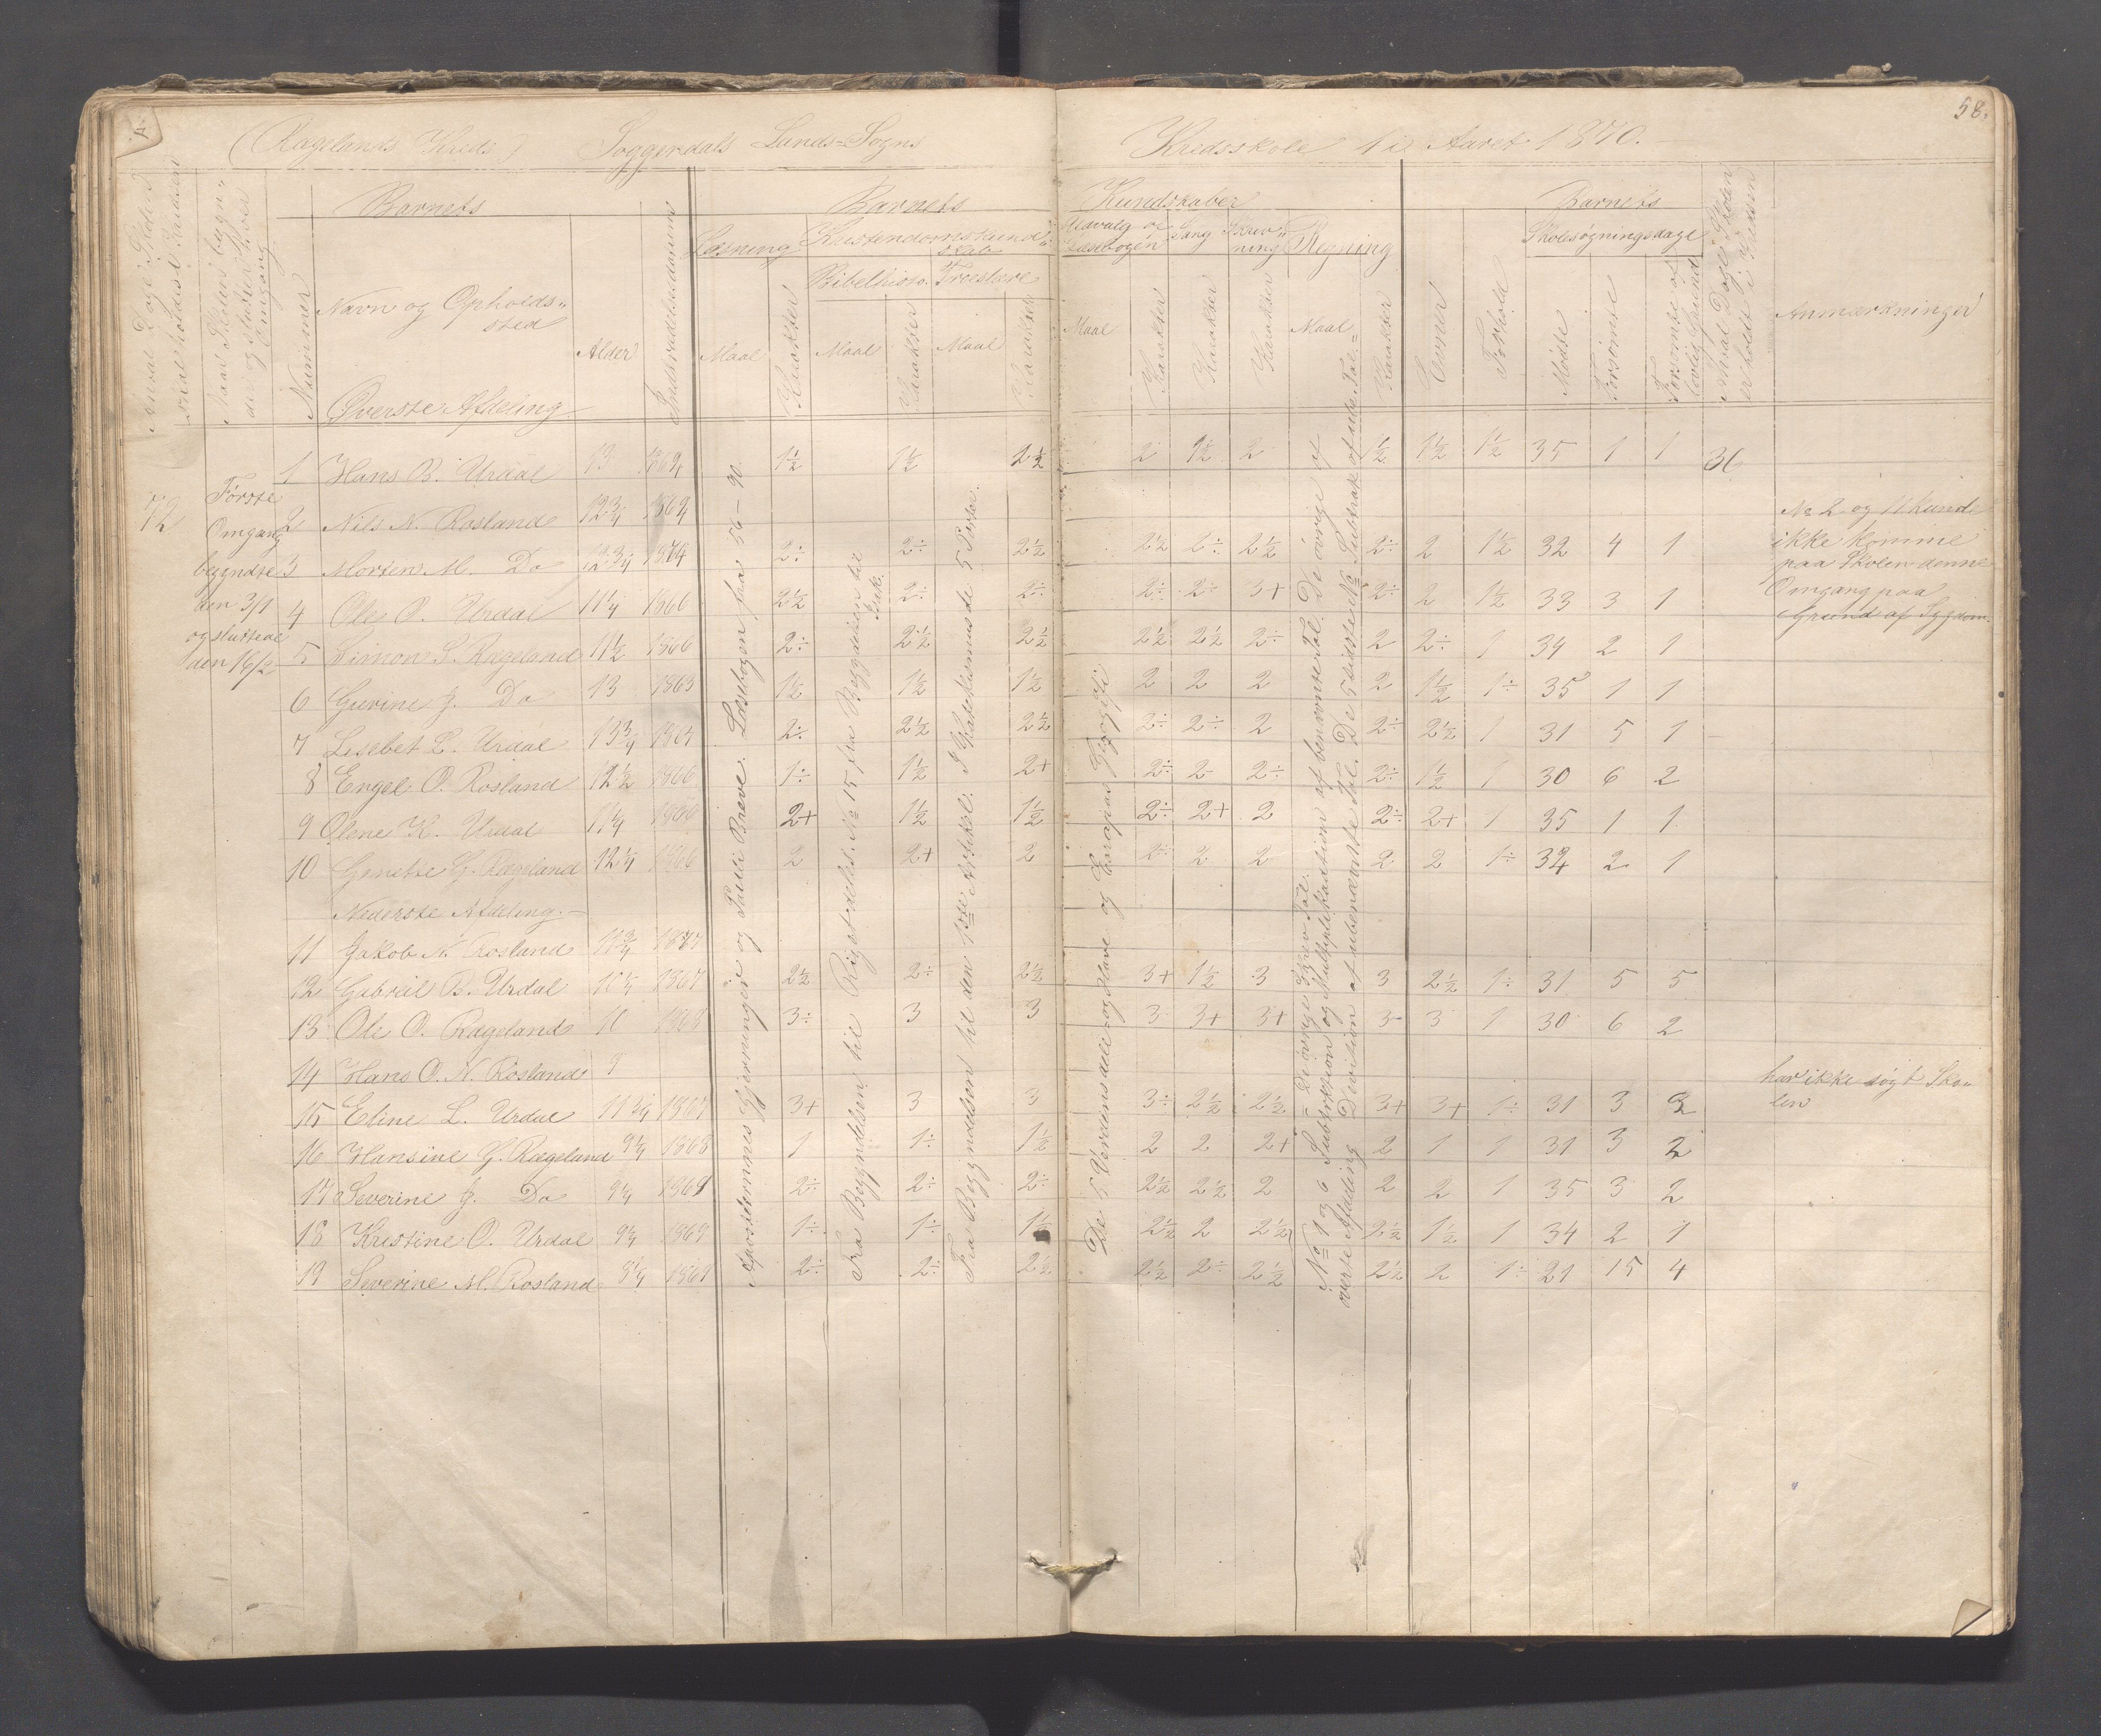 58.
(Rægelands Kreds) Soggerdals Lunds-Sogns Kredsskole i Aaret 1870.
Barnets Barnets Kundskaber Barnets
Læsning Kristendomskund„ skab Udvalg af Læsebogen Sang Skriv„ ning Regning Skolesøgningsdage
Bibelhisto. Troeslære
Nummer Navn og Opholds„ sted Alder Maal Karakter Maal Karakter Maal Karakter Maal Karakter Karakter Karakter Maal Karakter Evner Forhold Mødte Forsømte Forsømte af lovlig Grund Anmærkninger
Øverste Afdeling
72
Første
Omgang
begyndte
den 3/1
og sluttede
den 16/2
1 Hans B. Urdal 13 1864 1½ 1½ 2½ 2 1½ 2 1½ 1½ 1½ 35 1 1 36
2 Nils N. Rosland 12¾ 1864
3 Morten M. Do 12¾ 1874 2÷ 2÷ 2½ 2½ 2÷ 2½ 2÷ 2 1½ 32 4 1
4 Ole O. Urdal 11¼ 1866 2½ 2÷ 2÷ 2÷ 2÷ 3+ 2÷ 2 1½ 33 3 1
5 Simon S. Rægeland 11½ 1866 2÷ 2½ 2½ 2½ 2½ 2÷ 2 2÷ 1 34 2 1
6 Gurine J. Do 13 1863 1½ 1½ 1½ 2 2 2 2 1½ 1÷ 35 1 1
7 Lisebet L. Urdal 13¾ 1867 2÷ 2½ 2½ 2÷ 2÷ 2 2÷ 2½ 1 31 5 1
8 Engel O. Rosland 12½ 1866 1÷ 1½ 2+ 2÷ 2 2÷ 2÷ 1½ 1 30 6 2
9 Olene K. Urdal 11¼ 1866 2+ 1½ 1½ 2÷ 2+ 2 2÷ 2+ 1 35 1 1
10 Gunette G. Rægeland 12¼ 1866 2 2+ 2 2÷ 2 2 2 2 1÷ 34 2 1
Nederste Afdeling.
11 Jakob N. Rosland 10¾ 1867
12 Gabriel B. Urdal 10¼ 1867 2½ 2÷ 2½ 3+ 1½ 3 3 2½ 1÷ 31 5 5
13 Ole O. Rægeland 10 1868 3÷ 3 3 3 3+ 3+ 3 3 1 30 6 2
14 Hans O. N. Rosland 8
15 Eline L. Urdal 11¾ 1867 3+ 3 3 3÷ 2½ 2½ 3+ 3+ 1÷ 31 3 3
16 Hansine G. Rægeland 9¼ 1868 1 1÷ 1½ 2 2 2+ 2 1 1 31 3 2
17 Severine J. Do 9¼ 1869 2÷ 2÷ 2÷ 2½ 2½ 2 2 2 1 35 3 2
18 Kristine O. Urdal 9¼ 1869 1÷ 1÷ 1½ 2½ 2 2½ 2½ 1½ 1 34 2 1
19 Severine M. Rosland 8¼ 1869 2÷ 2÷ 2½ 2½ 2÷ 2½ 2½ 2 1÷ 21 15 4
No 2 og 11 kunde
ikke komme
paa Skolen denne
Omgang paa
Grund af Sygdom.
har ikke søgt Sko„
len
Apostlernes Gjerninger og Pauli Breve. Læsebogen fra 56–90.
Fra Begyndelsen til Rigets deles. No 15 fra Begyndelsen til
Fra Begyndelsen til den 1ste Artikel. I Katekismus de 5 Parter.
De 5 Verdensdele og Have og Europas Geografi
No 1 og 6 Subtraktion og Multiplikation af benævnte Tal. De øvrige af
øverste Afdeling Division af ubenævnte Tal. De 5 sidste No Subtrak. af ube. Tal.